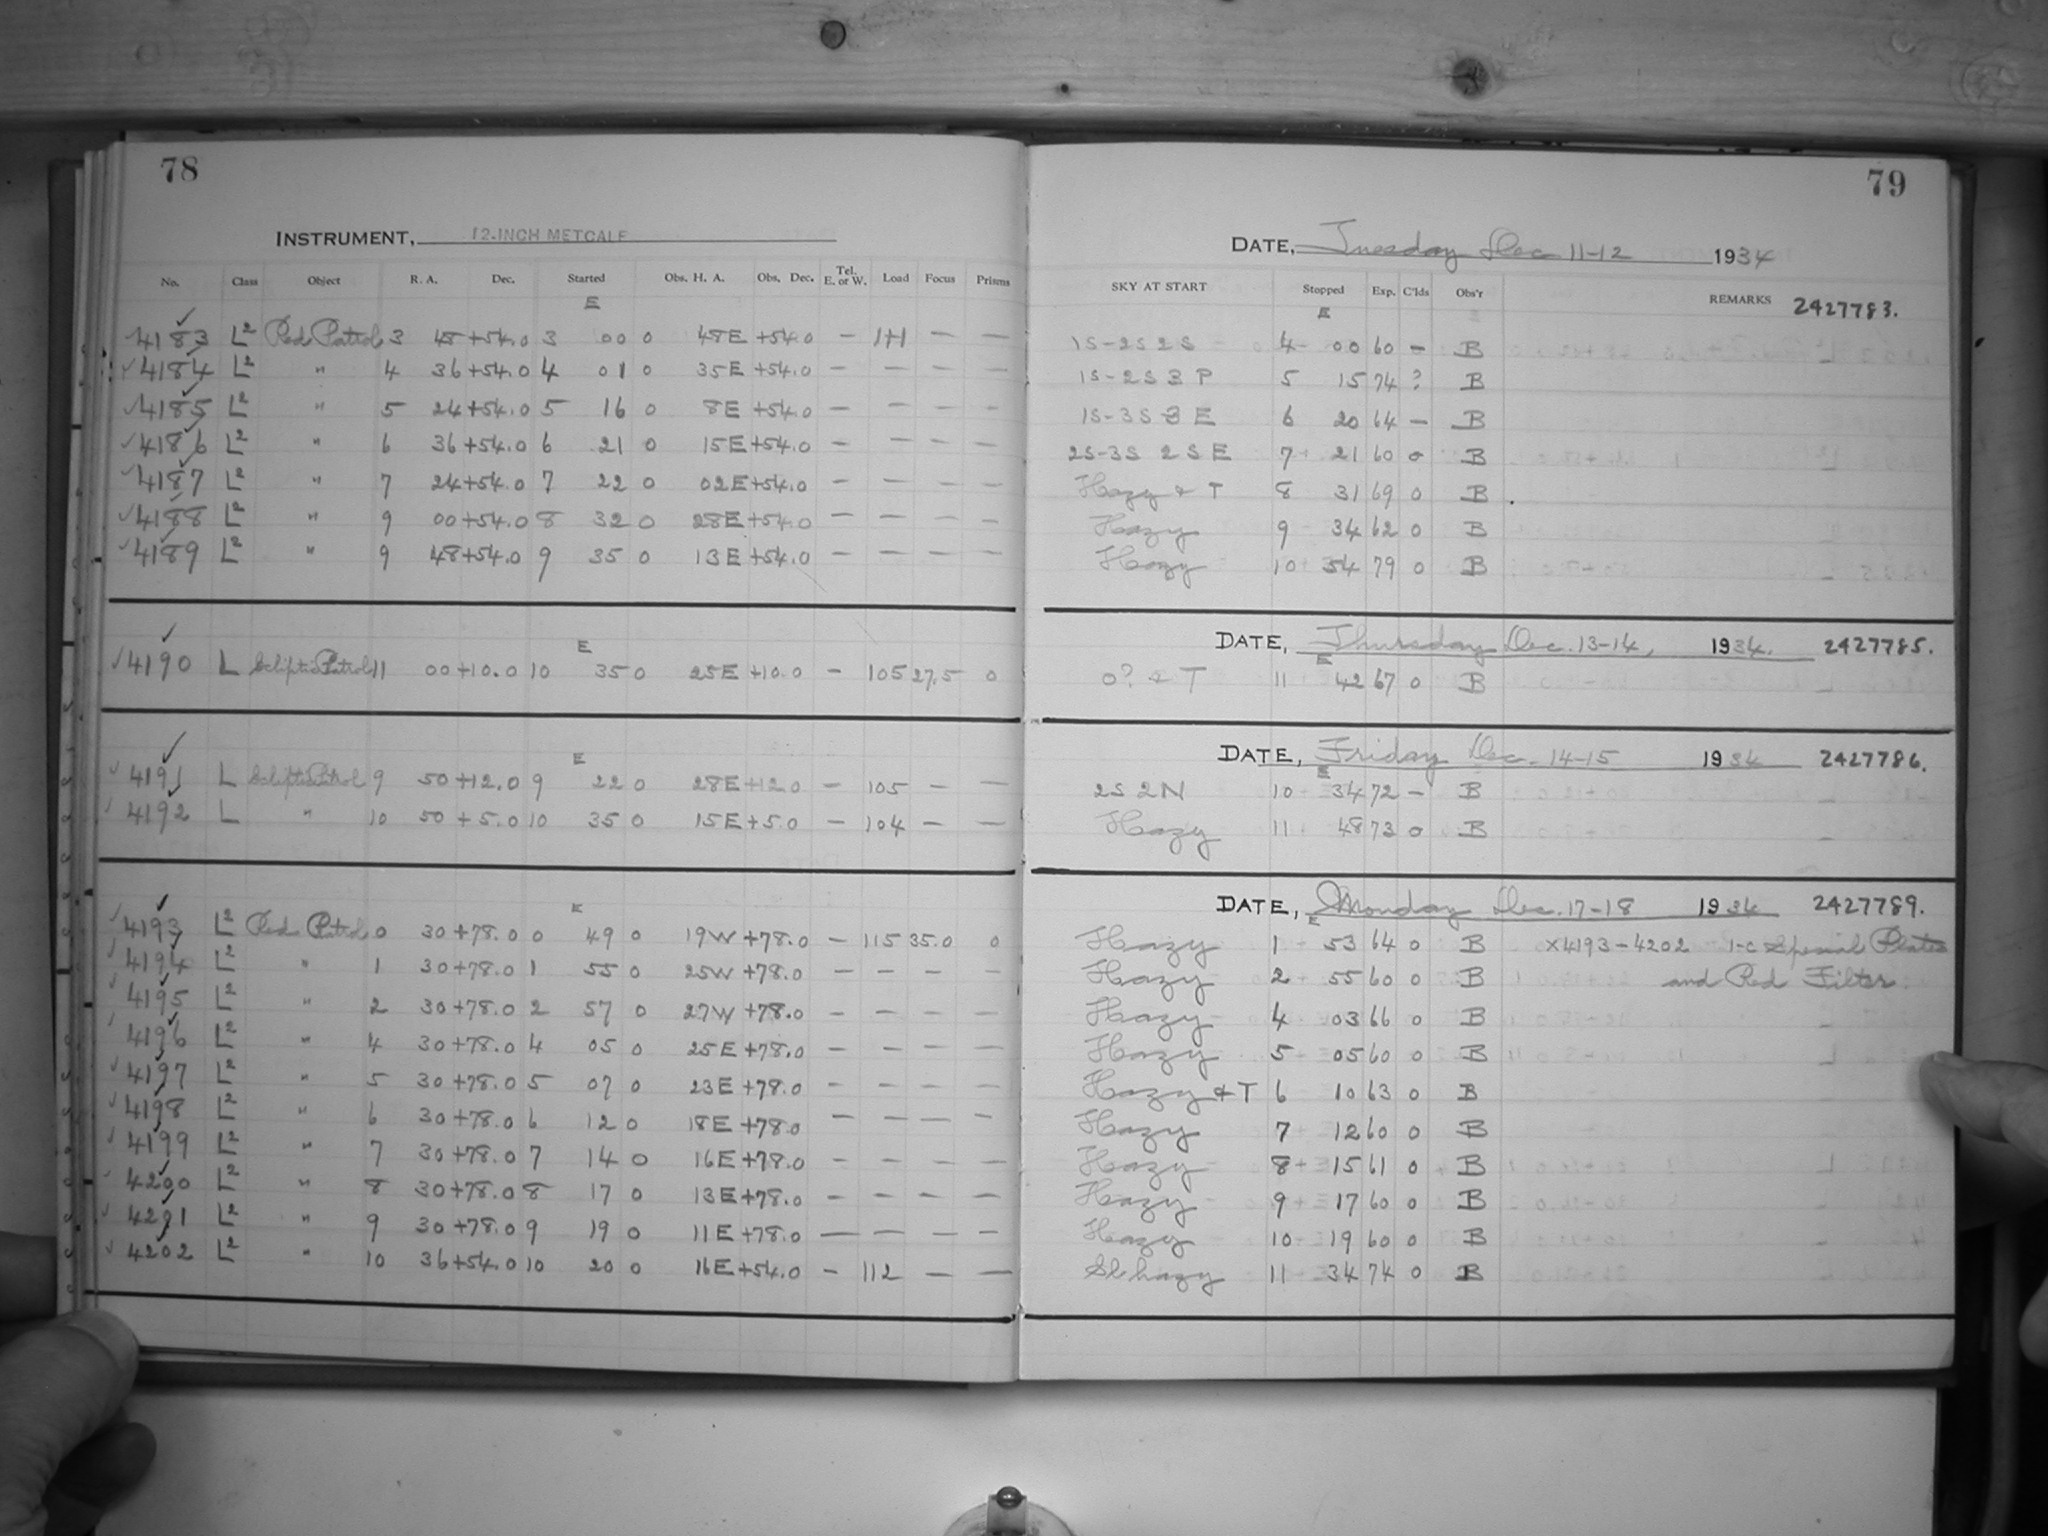 78
INSTRUMENT, 12-INCH METCALF
No. Class Object R. A. Dec. Started Obs. H. A. Obs. Dec. Tel. E. or W. Load Focus Prisms
E
4183 L2 Red Patrol 3 48 +54.0 3 00 0 48E +54.0 — 111 — —
4184 L2 " 4 36 +54.0 4 01 0 35E +54.0 — — — —
4185 L2 " 5 24 +54.0 5 16 0 8E +54.0 — — — —
4186 L2 " 6 36 +54.0 6 21 0 15E +54.0 — — — —
4187 L2 " 7 24 +54.0 7 22 0 02E +54.0 — — — —
4188 L2 " 9 00 +54.0 8 32 0 28E +54.0 — — — —
4189 L2 " 9 48 +54.0 9 35 0 13E +54.0 — — — —
E
4190 L Ecliptic Patrol 11 00 +10.0 10 35 0 25E +10.0 — 105 27.5 0
E
4191 L Ecliptic Patrol 9 50 +12.0 9 22 0 28E +12.0 — 105 — —
4192 L " 10 50 +5.0 10 35 0 15E +5.0 — 104 — —
E
4193 L2 Red Patrol 0 30 +78.0 0 49 0 19W +78.0 — 115 35.0 0
4194 L2 " 1 30 +78.0 1 55 0 25W +78.0 — — — —
4195 L2 " 2 30 +78.0 2 57 0 27W +78.0 — — — —
4196 L2 " 4 30 +78.0 4 05 0 25E +78.0 — — — —
4197 L2 " 5 30 +78.0 5 07 0 23E +78.0 — — — —
4198 L2 " 6 30 +78.0 6 12 0 18E +78.0 — — — —
4199 L2 " 7 30 +78.0 7 14 0 16E +78.0 — — — —
4200 L2 " 8 30 +78.0 8 17 0 13E +78.0 — — — —
4201 L2 " 9 30 +78.0 9 19 0 11E +78.0 — — — —
4202 L2 " 10 36 +54.0 10 20 0 16E +54.0 — 112 — —
79
DATE, Tuesday Dec 11-12 1934
SKY AT START Stopped Exp. C'lds Obs'r REMARKS 2427783.
E
1S-2S 2S 4 00 60 — B
1S-2S 3 P 5 15 74 ? B
1S-3S 3 E 6 20 64 — B
2S-3S 2 S E 7 21 60 0 B
Hazy & T 8 31 69 0 B
Hazy 9 34 62 0 B
Hazy 10 54 79 0 B
DATE, Thursday Dec. 13-14, 1934. 2427785.
E
0? & T 11 42 67 0 B
DATE, Friday Dec. 14-15 1934 2427786.
E
2S 2N 10 34 72 — B
Hazy 11 48 73 0 B
DATE, Monday Dec. 17-18 1934 2427789.
E
Hazy 1 53 64 0 B x4193-4202 1-C Special Plates
Hazy 2 55 60 0 B and Red Filter.
Hazy 4 03 66 0 B
Hazy 5 05 60 0 B
Hazy & T 6 10 63 0 B
Hazy 7 12 60 0 B
Hazy 8 15 61 0 B
Hazy 9 17 60 0 B
Hazy 10 19 60 0 B
Sl hazy 11 34 74 0 B